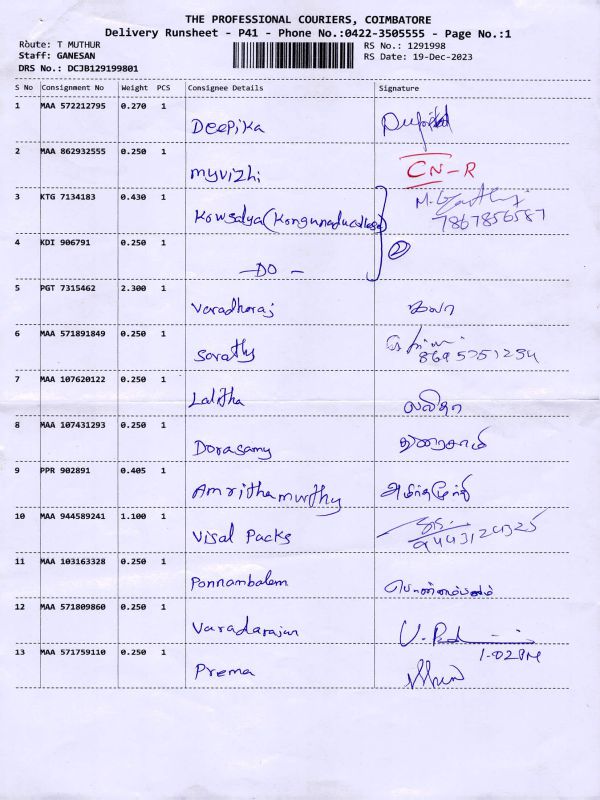 THE PROFESSIONAL COURIERS, COIMBATORE
Delivery Runsheet - P41 - Phone No.:0422-3505555 - Page No.:1
Route: T MUTHUR RS No.: 1291998
Staff: GANESAN RS Date: 19-Dec-2023
DRS No.: DCJB129199801
S No Consignment No Weight PCS Consignee Details Signature
1 MAA 572212795 0.270 1
Deepika
2 MAA 862932555 0.250 1
Myvizhi CN-R
3 KTG 7134183 0.430 1
Kowsalya 7867856587
4 KDI 906791 0.250 1 2
-DO-
5 PGT 7315462 2.300 1
Varadharaj
6 MAA 571891849 0.250 1
Sarathy
7 MAA 107620122 0.250 1
Lalitha லலிதா
8 MAA 107431293 0.250 1
Dorasamy துரைசாமி
9 PPR 902891 0.405 1
Amrithamurthy
10 MAA 944589241 1.100 1
Visal Packs 9443124325
11 MAA 103163328 0.250 1
Ponnambalem பொன்னம்பலம்
12 MAA 571809860 0.250 1
Varadarajan
13 MAA 571759110 0.250 1 1.02PM
Prema